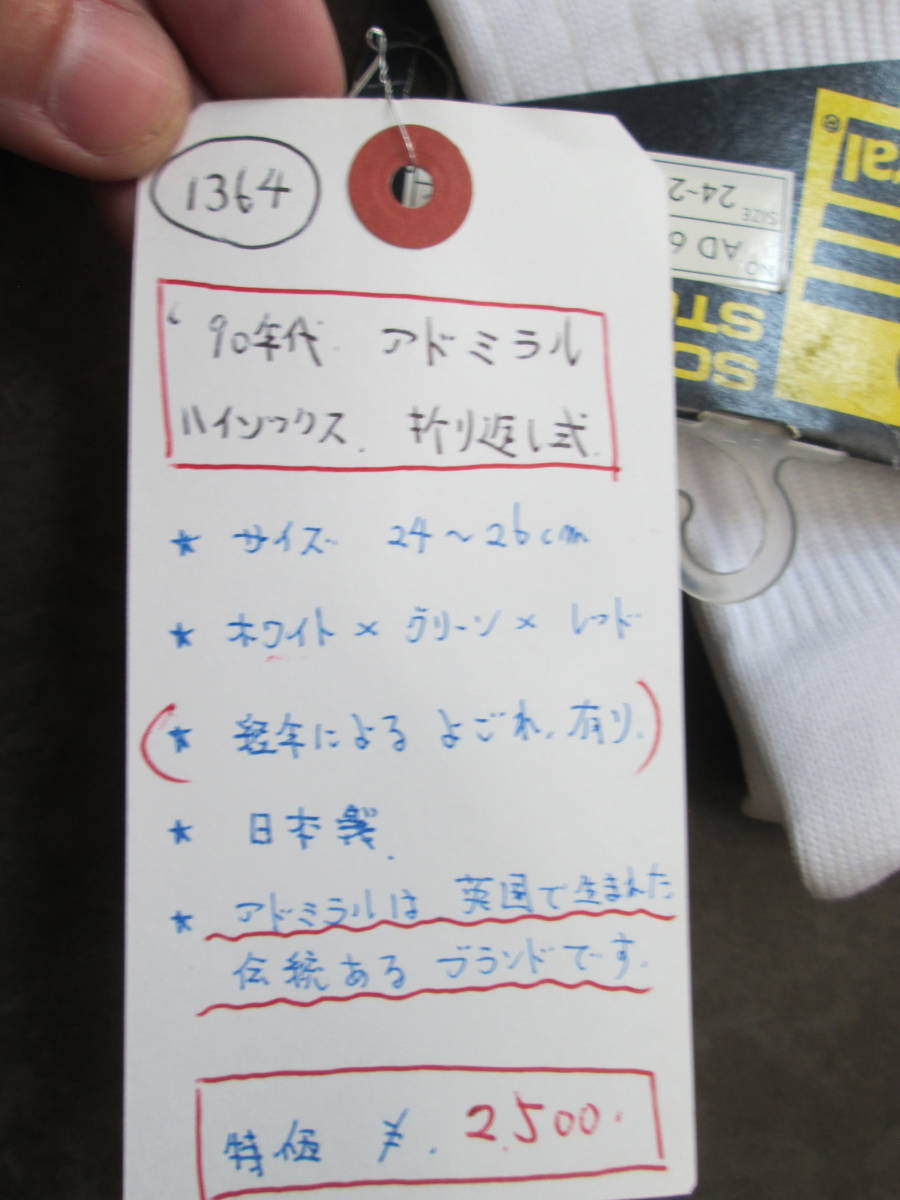 1364
'90年代 アドミラル
ハイソックス. 折り返し式.
★ サイズ 24～26cm
★ ホワイト × グリーン × レッド
(★ 経年による よごれ、有り.)
★ 日本製.
★ アドミラルは 英国で生まれた
伝統ある ブランドです.
特価 ¥. 2,500.
ral
®
SIZE 24~2
NO AD 6
SO
ST